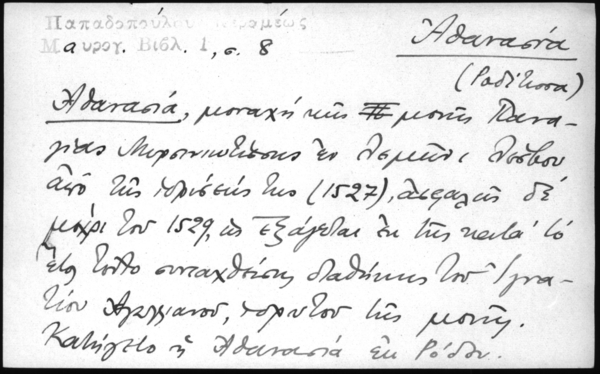 Παπαδοπούλου Κεραμέως
Μαυρογ. Βιβλ. 1, σ. 8
Ἀθανασία
(Ροδίτισσα)
Ἀθανασία, μοναχή τῆς μονῆς Πανα-
γίας Μυρσινιωτίσσης ἐν Λέσβου
ἀπό τῆς ἱδρύσεώς της (1527), ἀσφαλῶς δέ
μέχρι του 1529, ὡς ἐξάγεται ἐκ τῆς κατά τό
ἔτος τοῦτο συνταχθείσης διαθήκης τοῦ Ἰγνα-
τίου Ἀγαλλιανοῦ, ἱδρυτοῦ τῆς μονῆς.
Κατήγετο ἡ Ἀθανασία ἐκ Ρόδου.